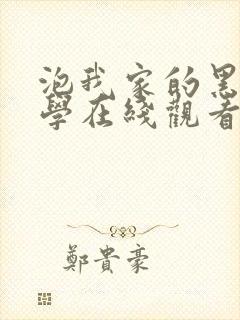 泡我家的黑
學在綫觀看
鄭貴豪